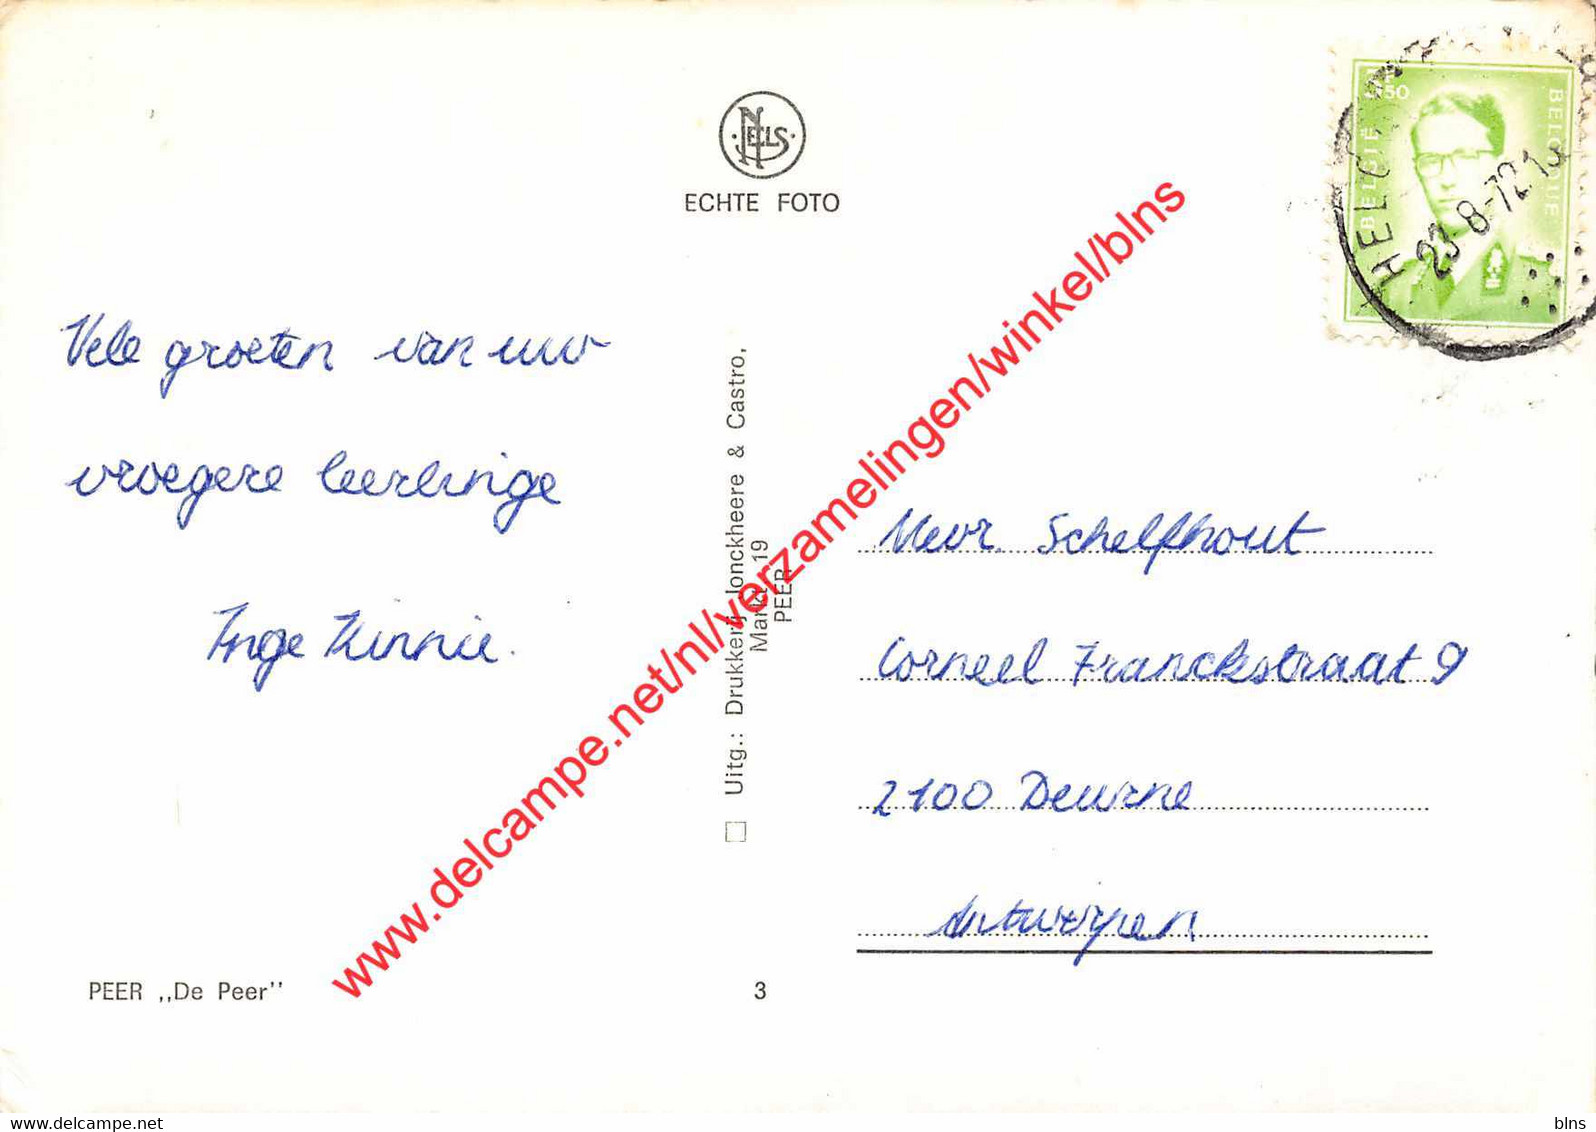 NELS
ECHTE FOTO
3F50
BELGIË
BELGIQUE
HELC
23-8-72
Vele groeten van uw
vroegere leerlinge
Inge Kinnie.
Uitg.: Drukkerij Jonckheere & Castro,
Markt 19
PEER
Mevr. Schelfhout
Corneel Franckstraat 9
2100 Deurne
Antwerpen
PEER „De Peer"
3
www.delcampe.net/nl/verzamelingen/winkel/blns
delcampe.net
blns